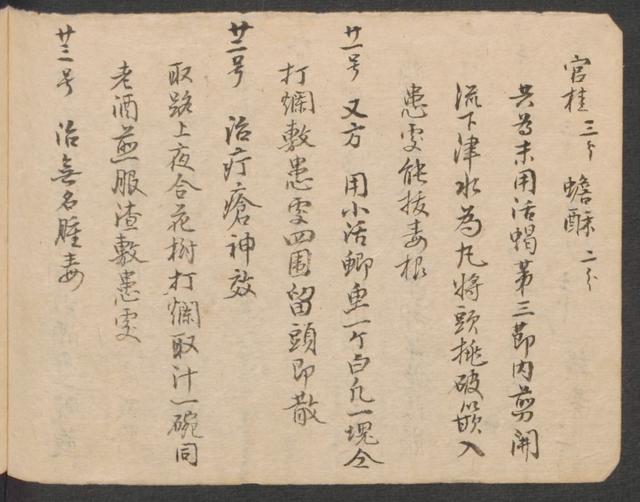 官桂三分 蟾酥二分
共為末用活蝎第三節內剪開
流下津水為丸將頭挑破嵌入
患处能拔毒根
廿一号 又方 用小活鲫鱼一个白凡一塊仝
打爛敷患处四围留頭即散
廿二号 治疔瘡神效
取路上夜合花樹打爛取汁一碗同
老酒煎服渣敷患处
廿三号 治無名腫毒